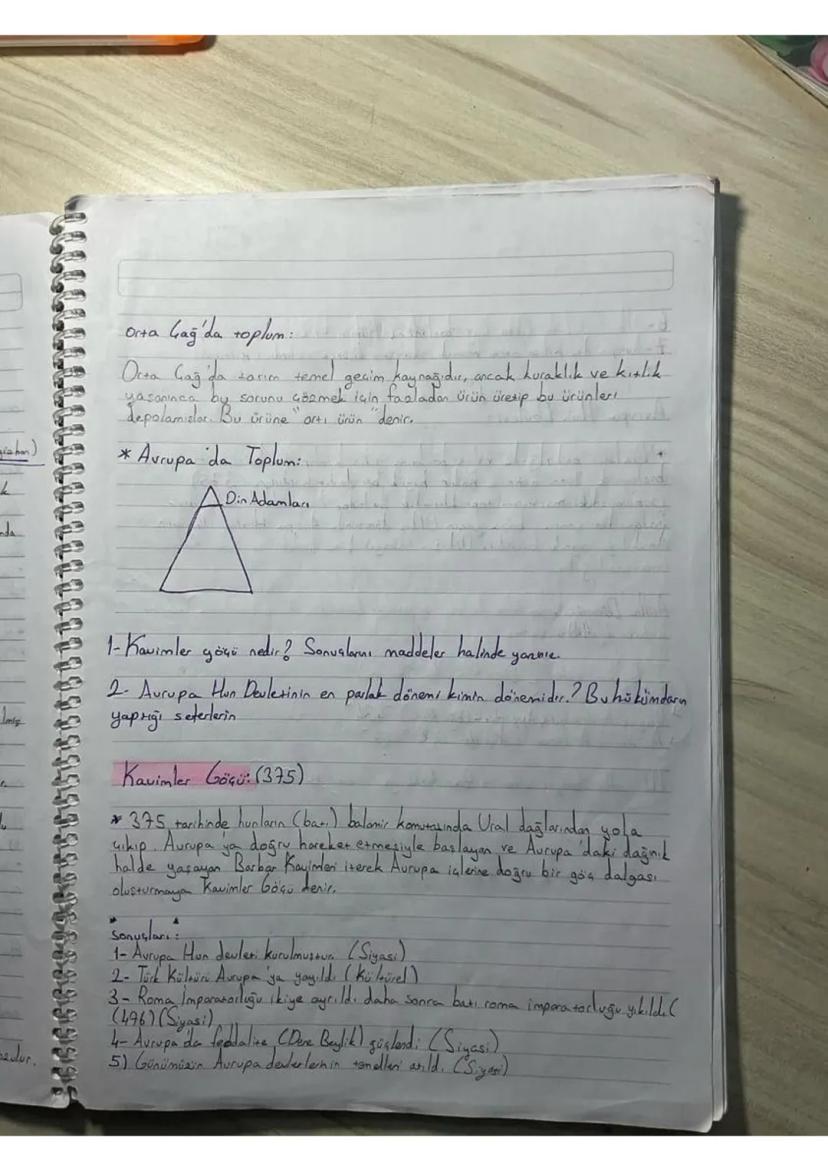 Orta Çağ'da toplum:
Orta Çağ'da tarım temel geçim kaynağıdır, ancak kuraklık ve kıtlık
yaşanınca bu sorunu çözmek için fazladan ürün üretip bu ürünleri
depolamışlar. Bu ürüne "artı ürün" denir.
* Avrupa'da Toplum:
Din Adamları
1- Kavimler göçü nedir? Sonuçlarını maddeler halinde yazınız.
2- Avrupa Hun Devletinin en parlak dönemi kimin dönemidir? Bu hükümdarın
yaptığı seferlerin
Kavimler Göçü: (375)
* 375 tarihinde hunların (batı) balamir komutasında Ural dağlarından yola
çıkıp Avrupa'ya doğru hareket etmesiyle başlayan ve Avrupa'daki dağınık
halde yaşayan Barbar Kavimleri iterek Avrupa içlerine doğru bir göç dalgası
oluşturmaya Kavimler Göçü denir.
Sonuçları:
1- Avrupa Hun devleti kurulmuştur. (Siyasi)
2- Türk Kültürü Avrupa'ya yayıldı (Kültürel)
3- Roma İmparatorluğu ikiye ayrıldı daha sonra batı roma imparatorluğu yıkıldı (
(496) (Siyasi)
4- Avrupa'da feodalite (Dere Beylik) güçlendi (Siyasi)
5) Günümüzün Avrupa devletlerinin temelleri atıldı. (Siyasi)